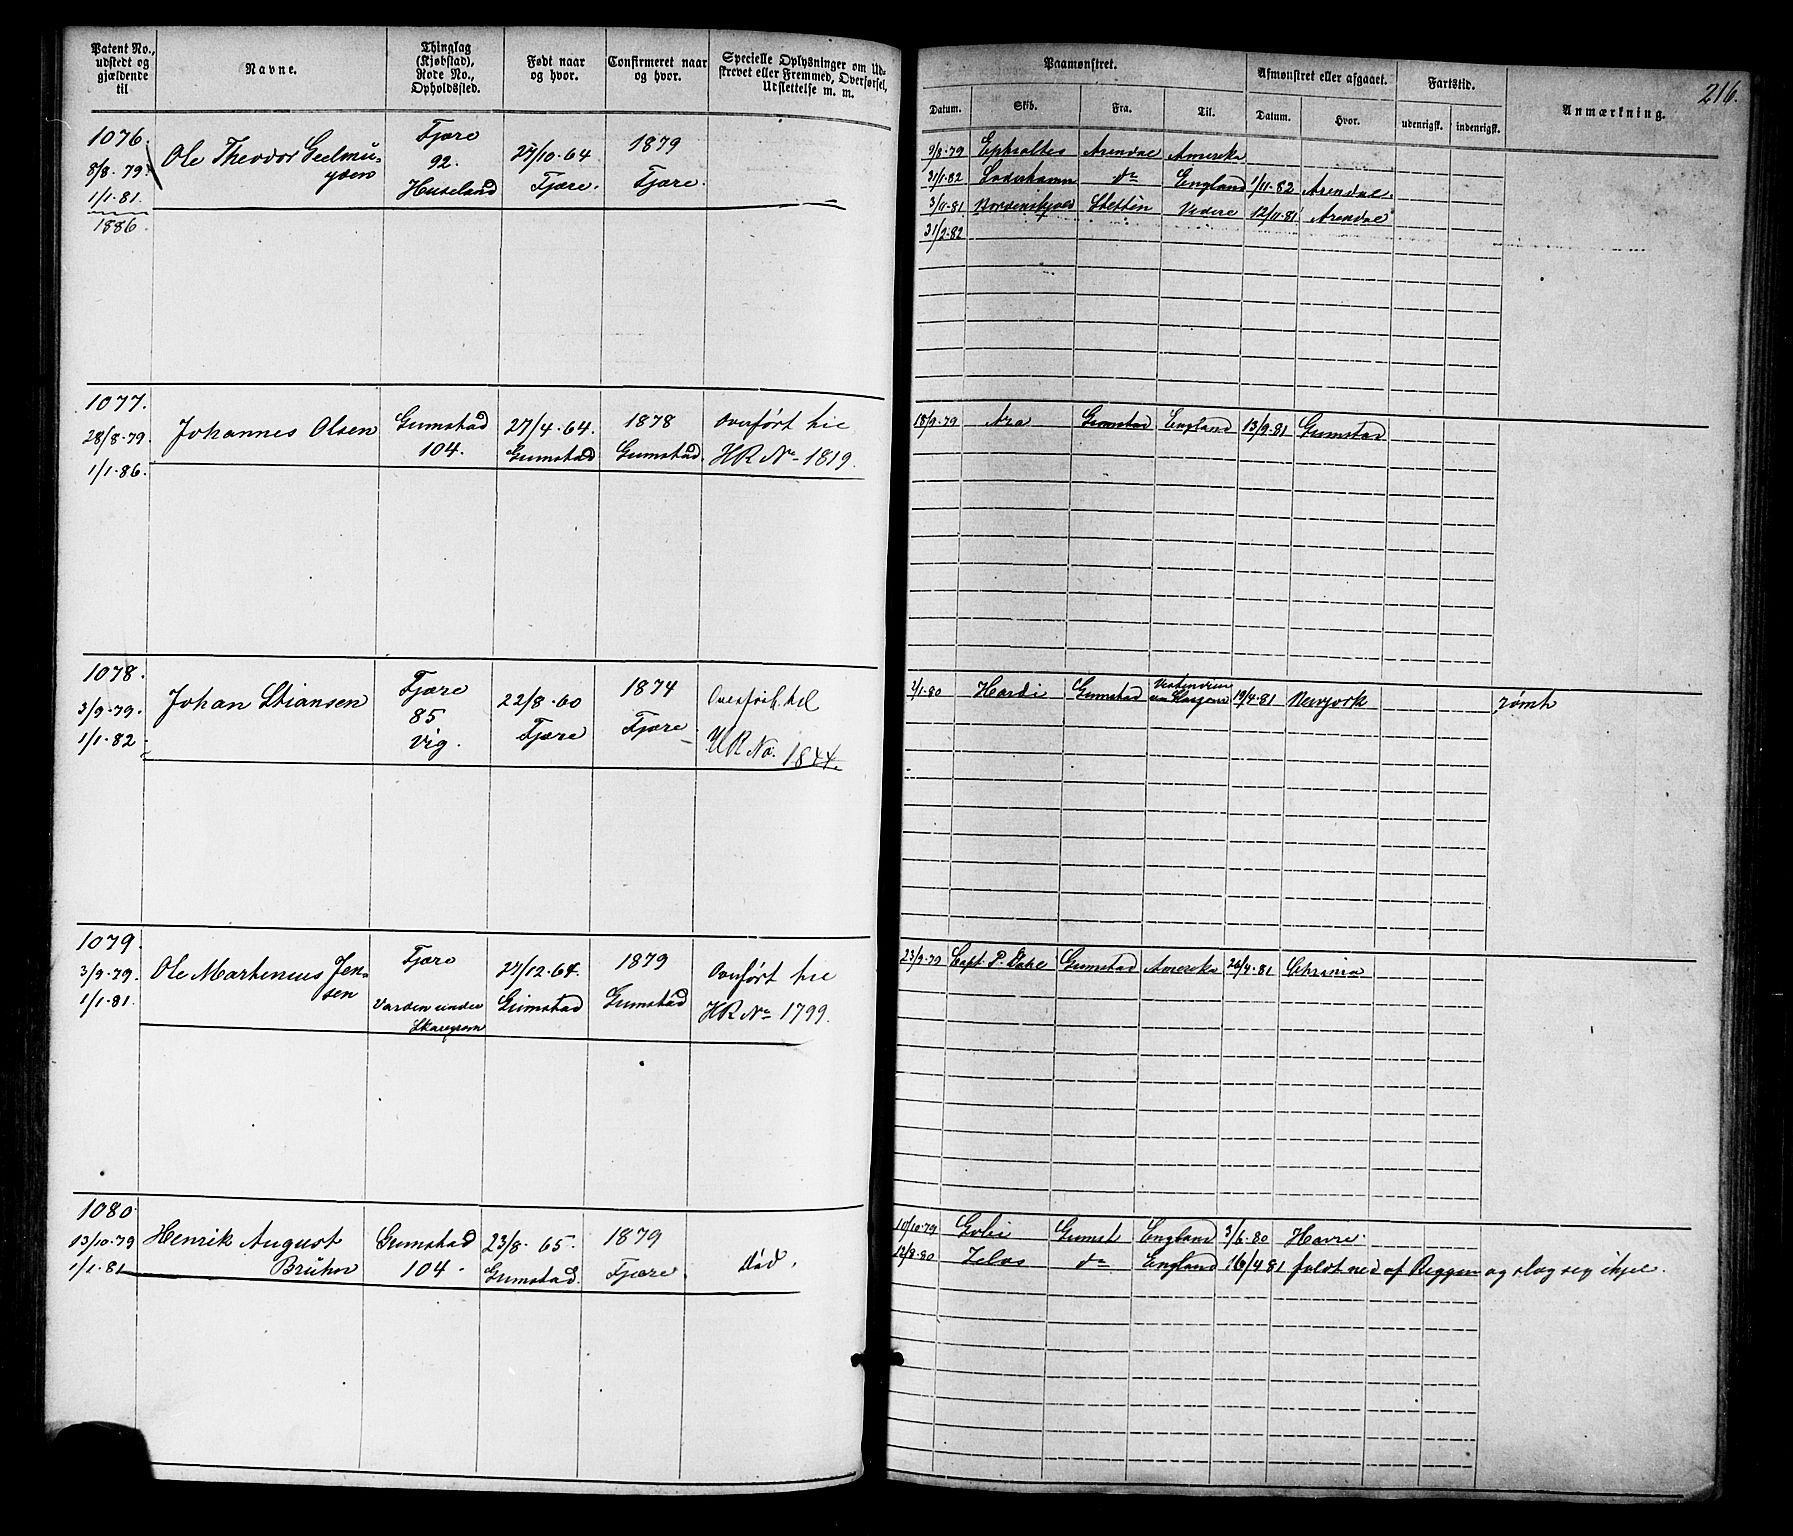 216.
Patent No., udstedt og gjældende til
Navne.
Thinglag (Kjøbstad), Rode No., Opholdssted.
Født naar og hvor.
Confirmeret naar og hvor.
Specielle Oplysninger om Udskrevet eller Fremmed, Overførsel, Udslettelse m. m.
Paamønstret.
Datum. Skib. Fra. Til.
Afmønstret eller afgaaet.
Datum. Hvor.
Fartstid.
udenrigsk. indenrigsk.
Anmærkning.
1076.
8/8-79.
1/1-81.
1886.
Ole Theodor Geelmuyden
Fjære
92.
Huseland
27/10-64
Fjære.
1879
Fjære.
9/8-79 Ephialtes Arendal Amerika
31/1-82 Do England 1/11-82 Arendal.
3/11-81 Nordenskjold Stettin Videre 12/11-81 Arendal
31/2-82
1077.
28/8-79.
1/1-86.
Johannes Olsen
Grimstad
104.
27/4-64.
Grimstad
1878
Grimstad.
Overført til
HR No 1819.
18/9-79 Ara Grimstad England 13/9-81 Grimstad
1078.
3/9-79.
1/1-82
Johan Stiansen
Fjære
85
Vig.
22/8-60
Fjære
1874
Fjære
Overført til
HR No. 1844.
2/1-80 Hardi Grimstad Vestindien 19/4-81 Newyork rømt
1079.
3/9-79.
1/1-81.
Ole Martinius Jensen
Fjære
Varden under
27/12-64.
Grimstad
1879
Grimstad
Overført til
HR No 1799.
23/9-79 Capt. P. Dahl Grimstad Amerika 26/4-81 Christiania
1080
13/10-79
1/1-81
Henrik August
Bruhn
Grimstad
104.
23/8-65.
Grimstad.
1879
Fjære.
Død.
10/10-79 Grimst England 3/6-80 Havre.
12/8-80 Zelos Do England 16/4-81 faldt ned af Riggen og slog sig ihjel.